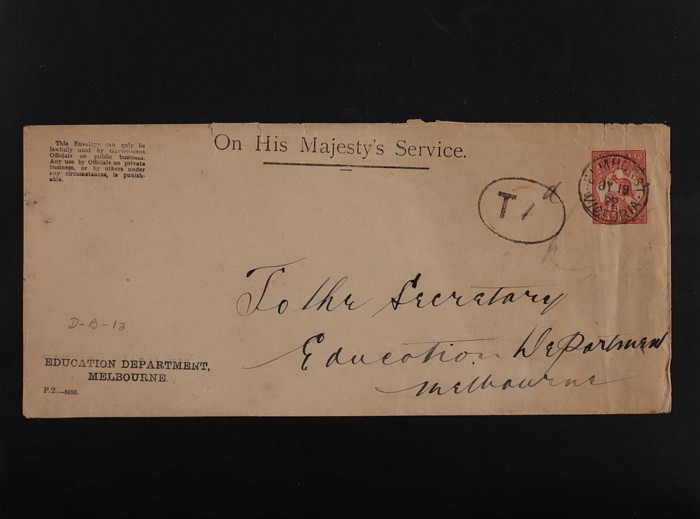 This Envelope can only be
lawfully used by Government
Officials on public business.
Any use by Officials on private
business, or by others under
any circumstances, is punish-
able.
On His Majesty's Service.
T 1 d
VICTORIA
To the Secretary
Education Department
Melbourne
D-B-13
EDUCATION DEPARTMENT,
MELBOURNE.
P.2.—8486.